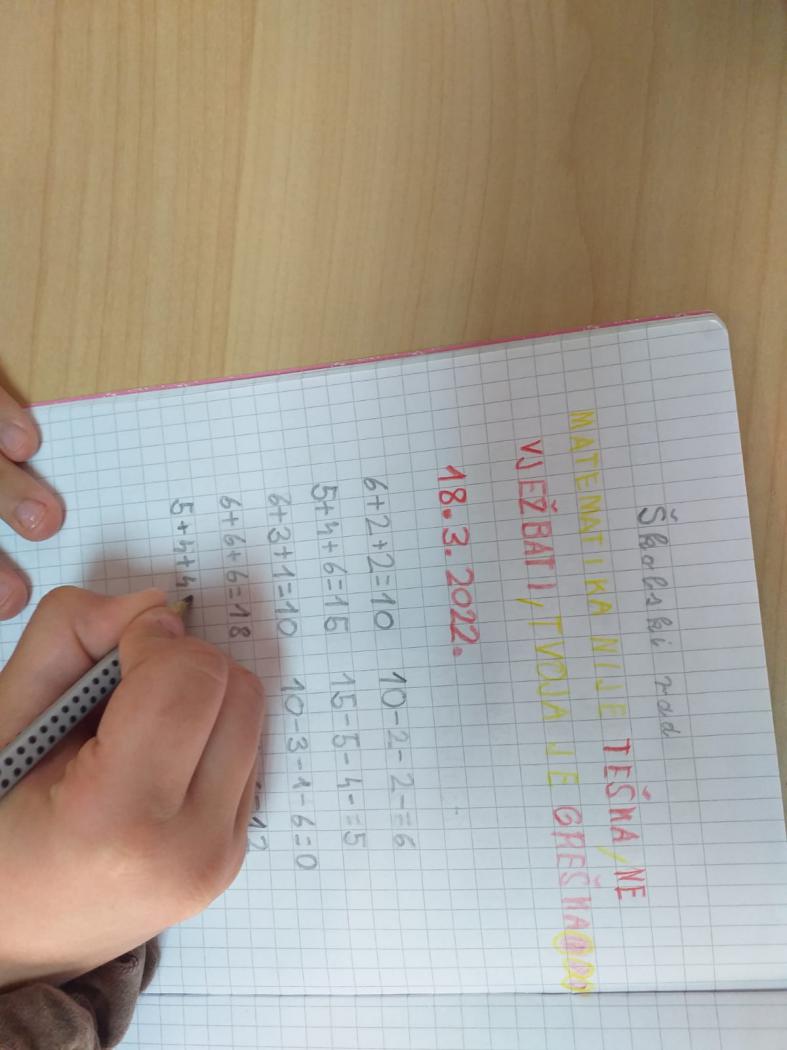 Školski rad
MATEMATIKA NIJE TEŠKA, NE
VJEŽBATI, TVOJA JE GREŠKA
18.3.2022.
6+2+2=10 10-2-2-=6
5+4+6=15 15-5-4-=5
6+3+1=10 10-3-1-6=0
6+6+6=18 =12
5+4+4